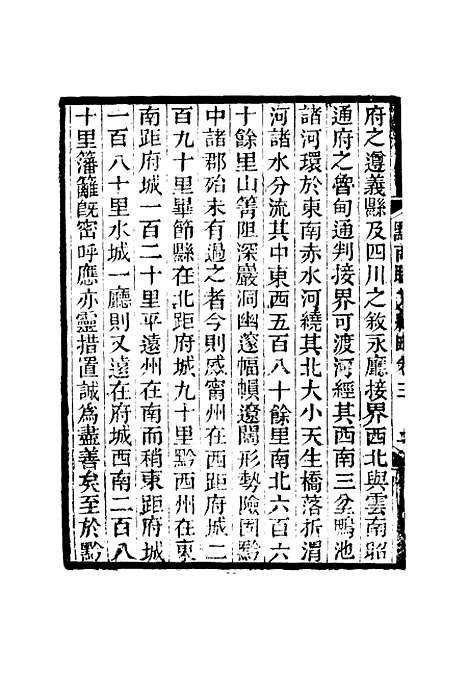 府之遵義縣及四川之敘永廳接界西北與雲南昭
通府之魯甸通判接界可渡河經其西南三岔鴨池
諸河環於東南赤水河繞其北大小天生橋落折渭
河諸水分流其中東西五百八十餘里南北六百六
十餘里山箐阻深巖洞幽邃幅幀遼闊形勢險固黔
中諸郡殆未有過之者今則威甯州在西距府城二
百九十里畢節縣在北距府城九十里黔西州在東
南距府城一百二十里平遠州在南而稍東距府城
一百八十里水城一廳則又遠在府城西南二百八
十里籓籬旣密呼應亦靈措置誠爲盡善矣至於黔
黔南職方紀略卷三